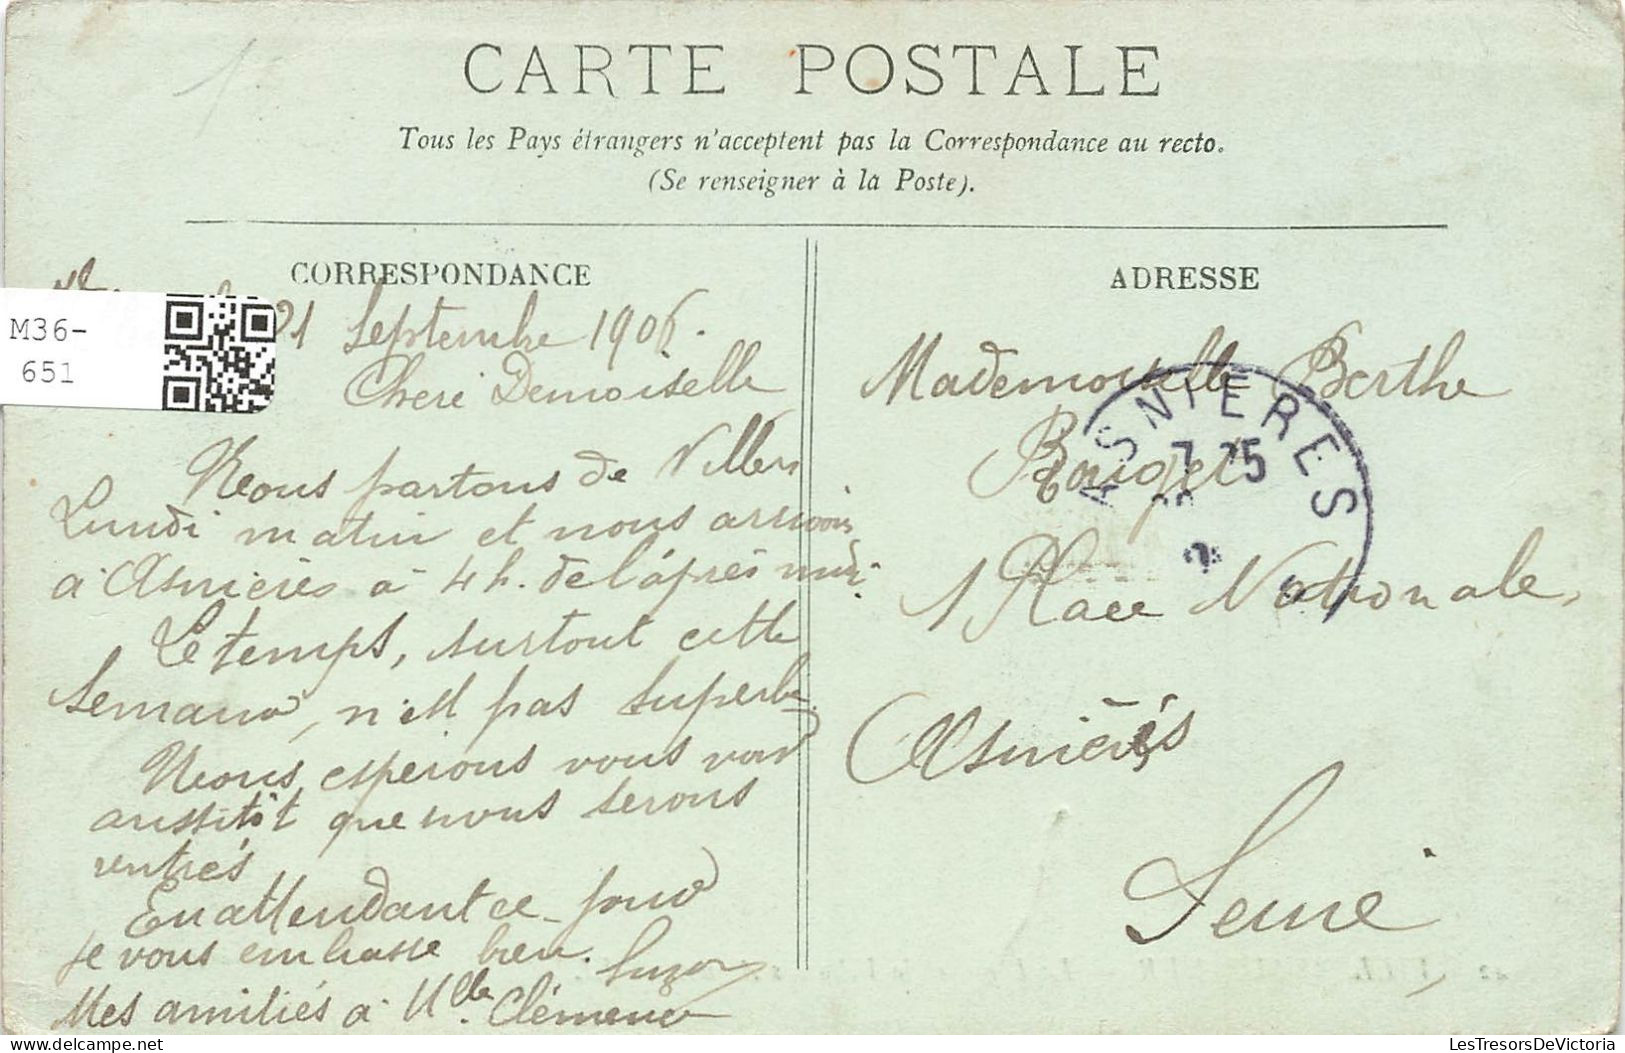 CARTE POSTALE
Tous les Pays étrangers n'acceptent pas la Correspondance au recto.
(Se renseigner à la Poste).
CORRESPONDANCE
21 Septembre 1906.
Cheré Demoiselle
Nous partons de Villers
Lundi matin et nous arrivons
à Asnières à 4 h. de l'après midi.
Le temps, surtout cette
semaine, n'est pas superbe.
Nous espérons vous voir
aussitôt que nous serons
rentrés
En attendant ce jour
je vous embrasse bien.
Mes amitiés à Mlle. Clémence
ADRESSE
Mademoiselle Berthe
1 Place Nationale,
Asnières
Seine
ASNIERES
7 25
M36-
651
LesTresorsDeVictoria